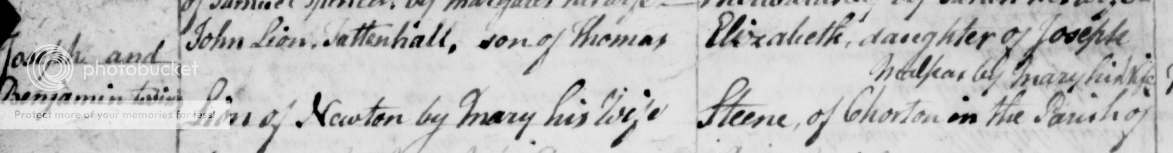 of Samuel Spencer, by Margaret his wife
Joseph and
Benjamin twins
John Lion, Tattenhall, son of Thomas
Lion of Newton by Mary his Wife
Elizabeth, daughter of Joseph
Malpas by Mary his Wife
Steene, of Chorton in the Parish of
photobucket
Protect more of your memories for less!